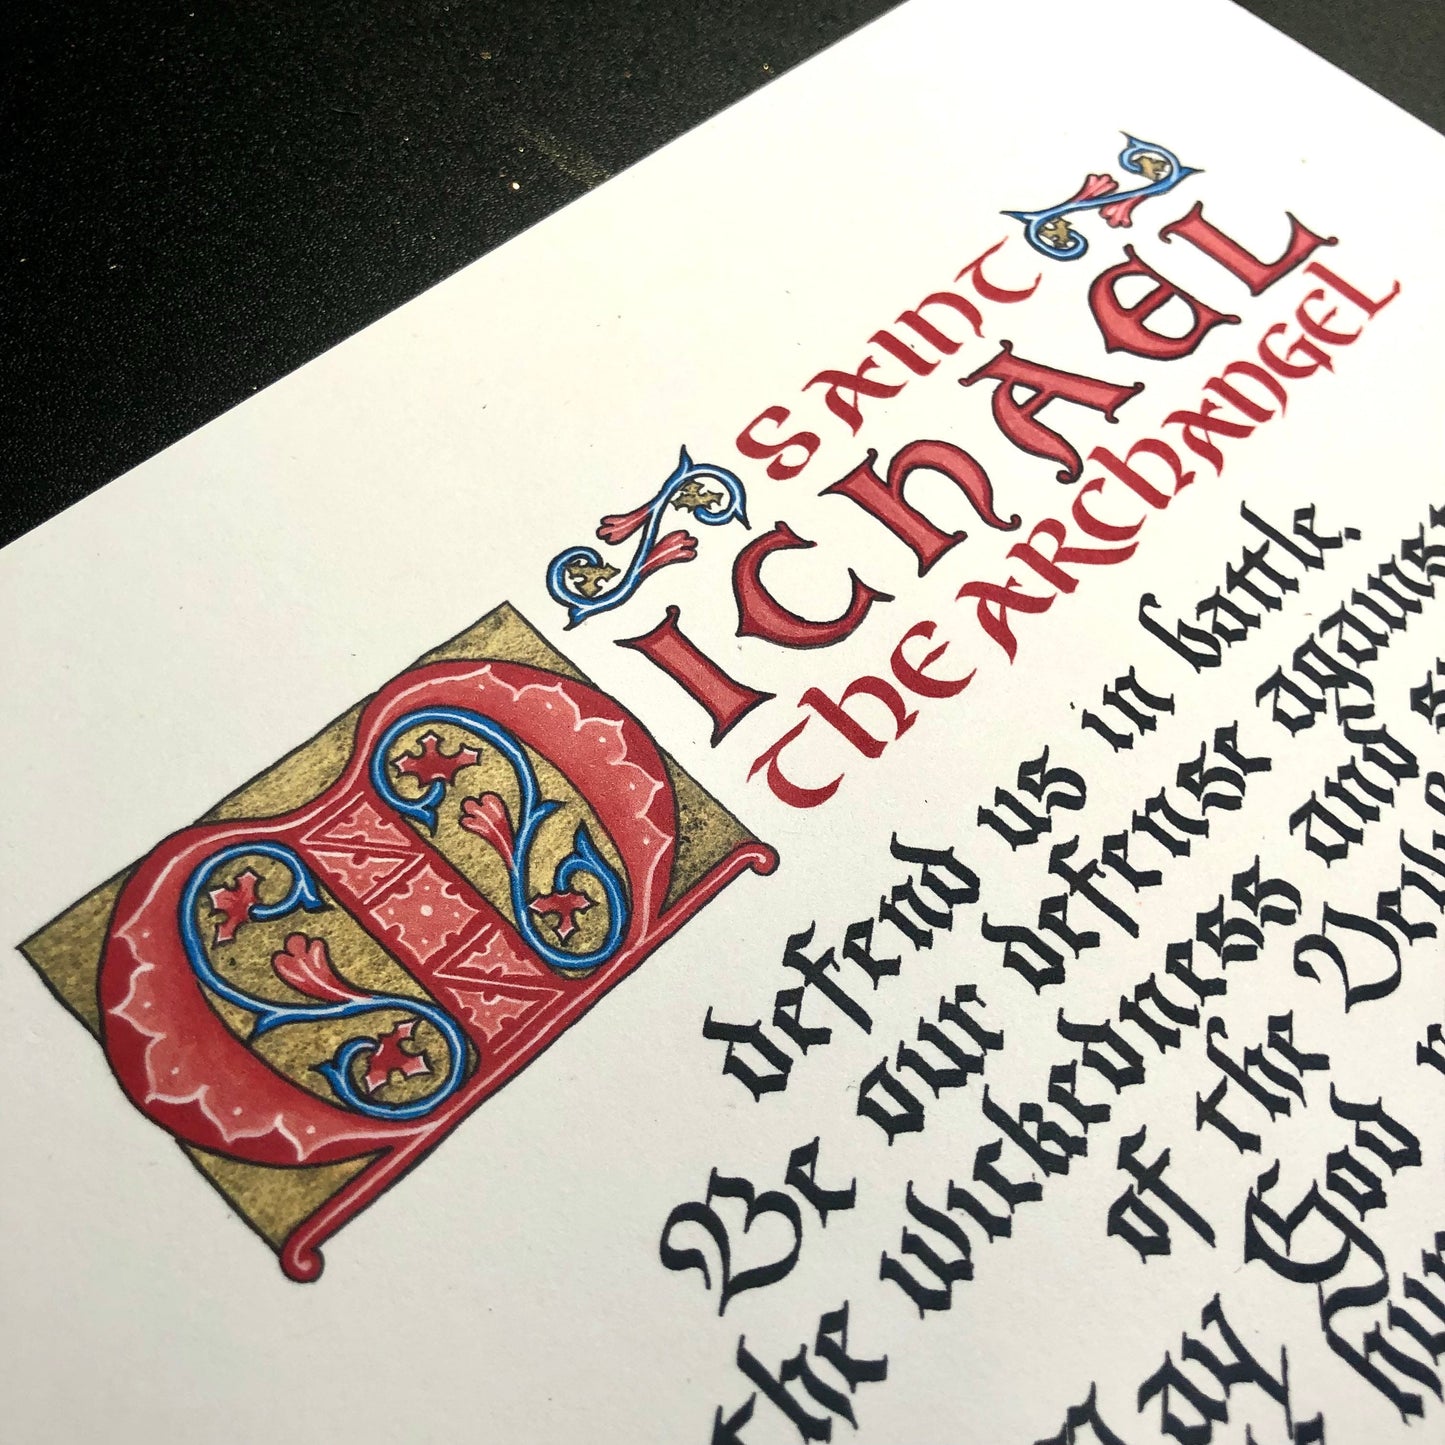 SAINT
MICHAEL
THE ARCHANGEL
defend us in battle.
Be our defense agains
the wickedness and
of the
ay God